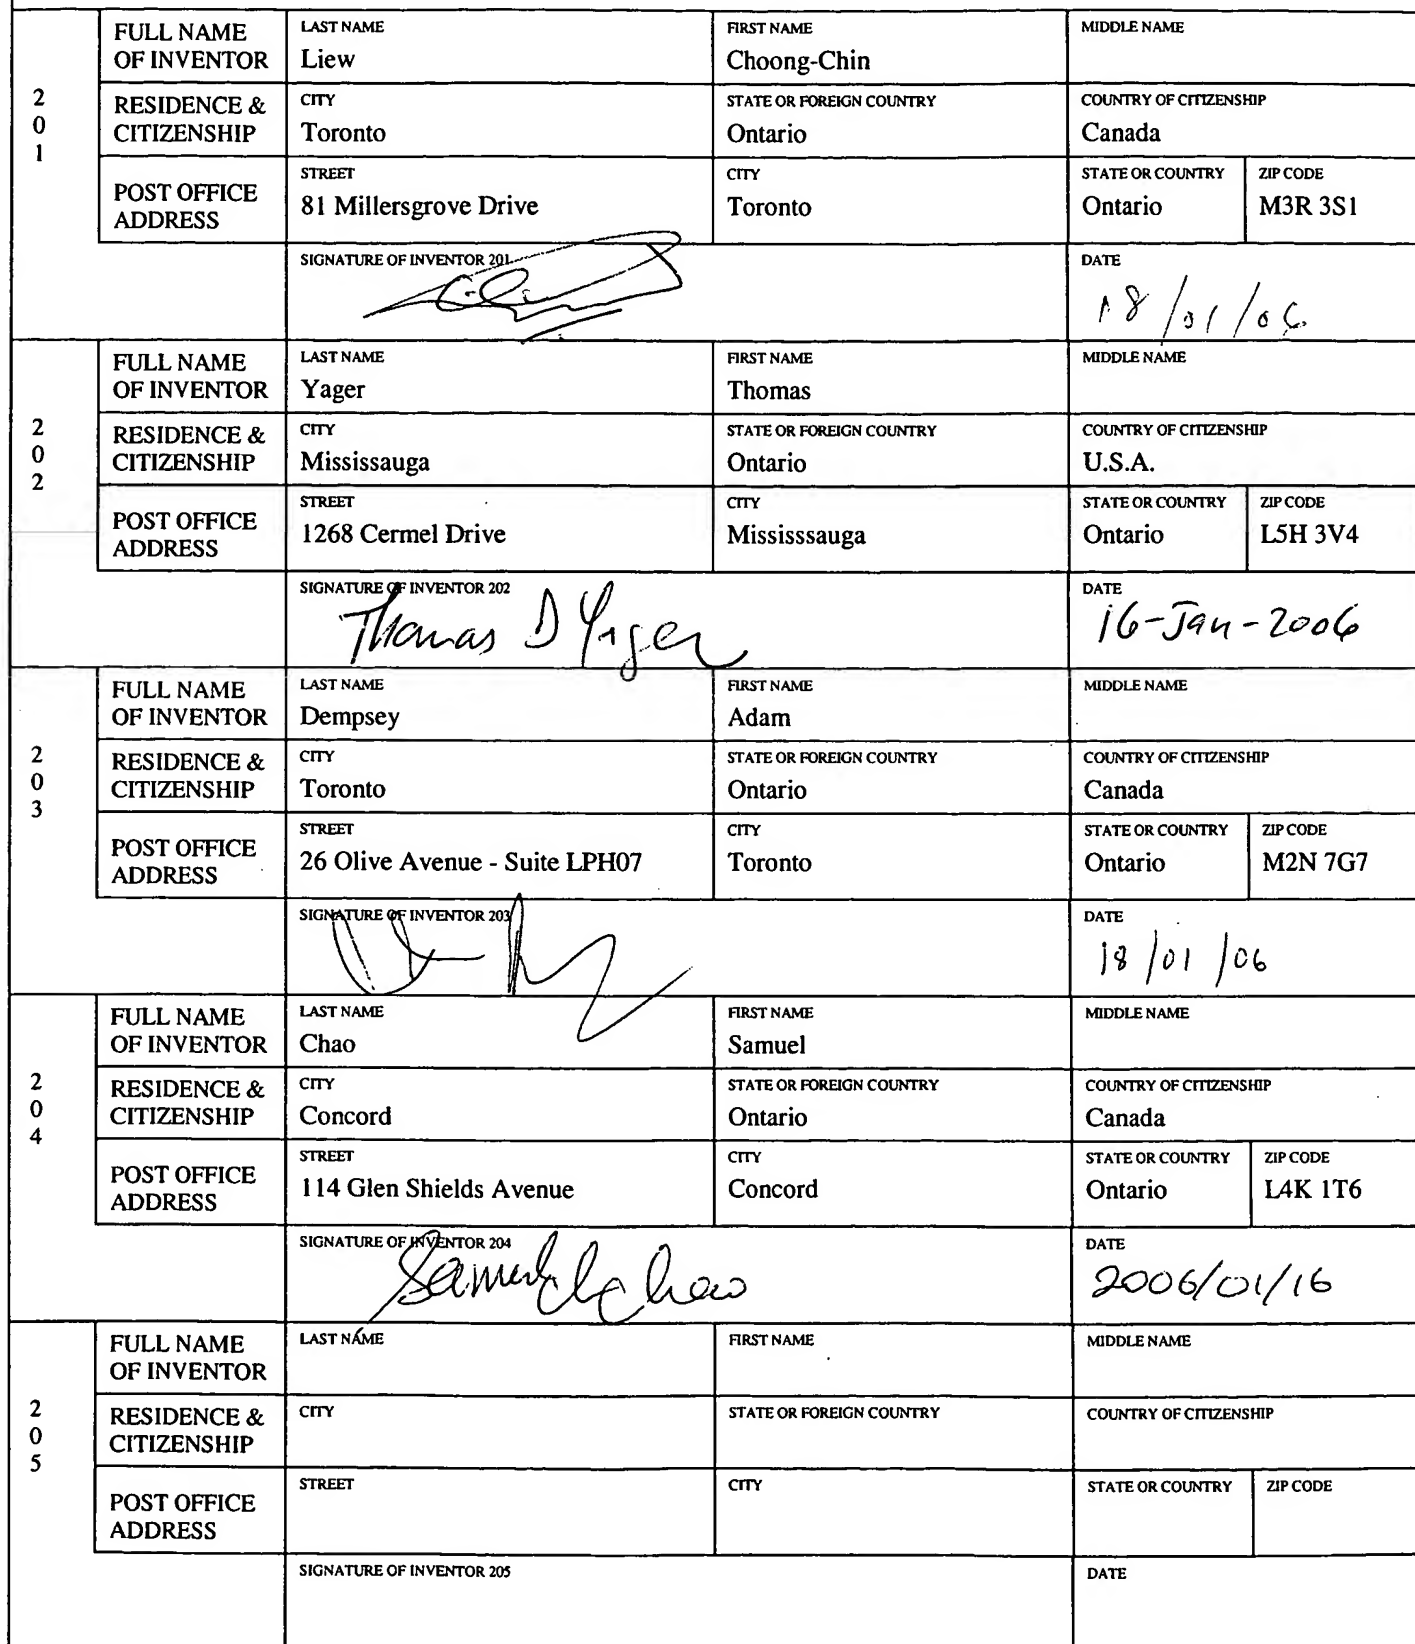 FULL NAME OF INVENTOR
LAST NAME
Liew
FIRST NAME
Choong-Chin
MIDDLE NAME
201
RESIDENCE & CITIZENSHIP
CITY
Toronto
STATE OR FOREIGN COUNTRY
Ontario
COUNTRY OF CITIZENSHIP
Canada
POST OFFICE ADDRESS
STREET
81 Millersgrove Drive
CITY
Toronto
STATE OR COUNTRY
Ontario
ZIP CODE
M3R 3S1
SIGNATURE OF INVENTOR 201
DATE
18/01/06
FULL NAME OF INVENTOR
LAST NAME
Yager
FIRST NAME
Thomas
MIDDLE NAME
202
RESIDENCE & CITIZENSHIP
CITY
Mississauga
STATE OR FOREIGN COUNTRY
Ontario
COUNTRY OF CITIZENSHIP
U.S.A.
POST OFFICE ADDRESS
STREET
1268 Cermel Drive
CITY
Mississsauga
STATE OR COUNTRY
Ontario
ZIP CODE
L5H 3V4
SIGNATURE OF INVENTOR 202
Thomas D Yager
DATE
16-Jan-2006
FULL NAME OF INVENTOR
LAST NAME
Dempsey
FIRST NAME
Adam
MIDDLE NAME
203
RESIDENCE & CITIZENSHIP
CITY
Toronto
STATE OR FOREIGN COUNTRY
Ontario
COUNTRY OF CITIZENSHIP
Canada
POST OFFICE ADDRESS
STREET
26 Olive Avenue - Suite LPH07
CITY
Toronto
STATE OR COUNTRY
Ontario
ZIP CODE
M2N 7G7
SIGNATURE OF INVENTOR 203
DATE
18/01/06
FULL NAME OF INVENTOR
LAST NAME
Chao
FIRST NAME
Samuel
MIDDLE NAME
204
RESIDENCE & CITIZENSHIP
CITY
Concord
STATE OR FOREIGN COUNTRY
Ontario
COUNTRY OF CITIZENSHIP
Canada
POST OFFICE ADDRESS
STREET
114 Glen Shields Avenue
CITY
Concord
STATE OR COUNTRY
Ontario
ZIP CODE
L4K 1T6
SIGNATURE OF INVENTOR 204
Samuel Chao
DATE
2006/01/16
FULL NAME OF INVENTOR
LAST NAME
FIRST NAME
MIDDLE NAME
205
RESIDENCE & CITIZENSHIP
CITY
STATE OR FOREIGN COUNTRY
COUNTRY OF CITIZENSHIP
POST OFFICE ADDRESS
STREET
CITY
STATE OR COUNTRY
ZIP CODE
SIGNATURE OF INVENTOR 205
DATE